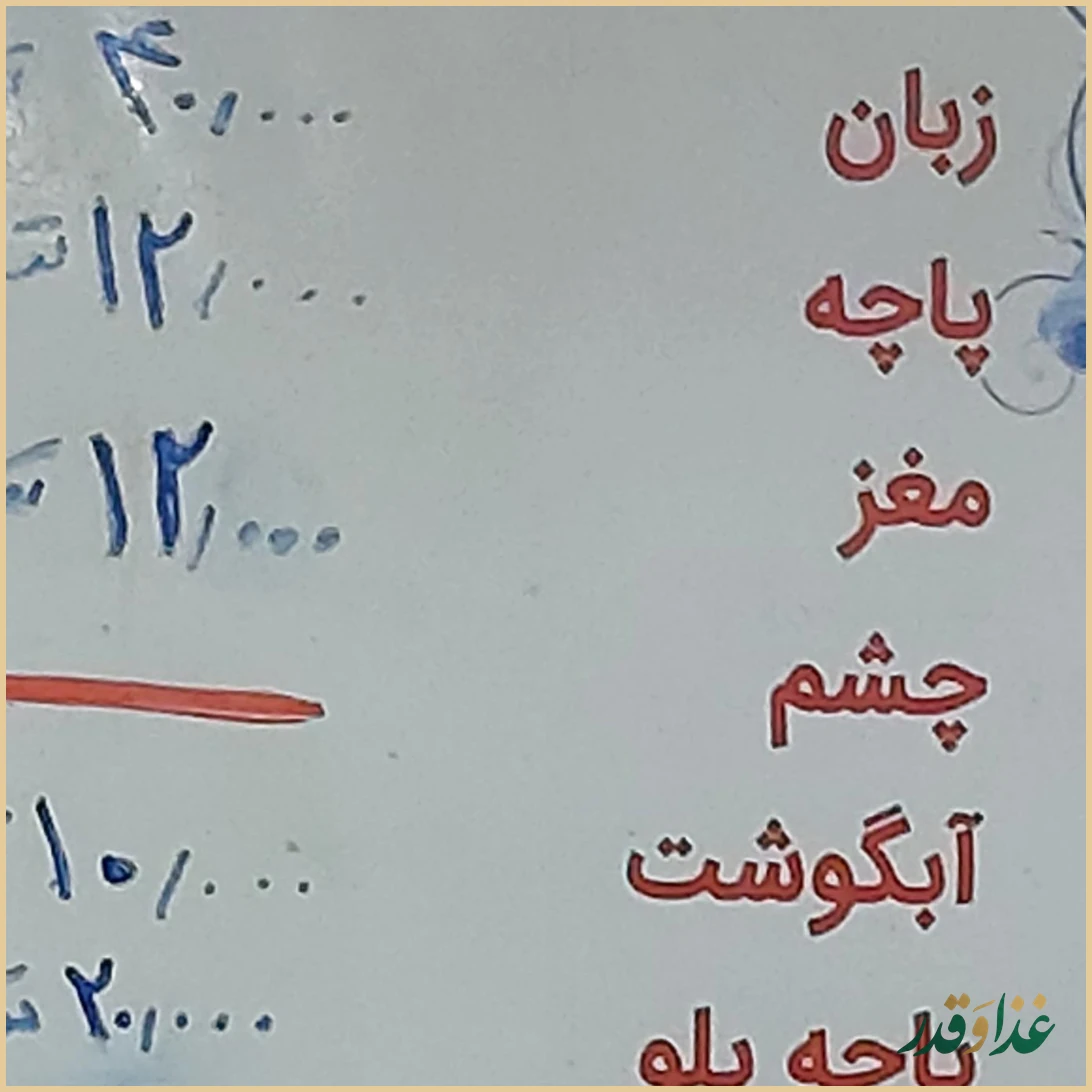 زبان ۴۰,۰۰۰
پاچه ۱۲,۰۰۰
مغز ۱۲,۰۰۰
چشم
آبگوشت ۱۰,۰۰۰
پاچه پلو ۲۰,۰۰۰
غذا و قدر